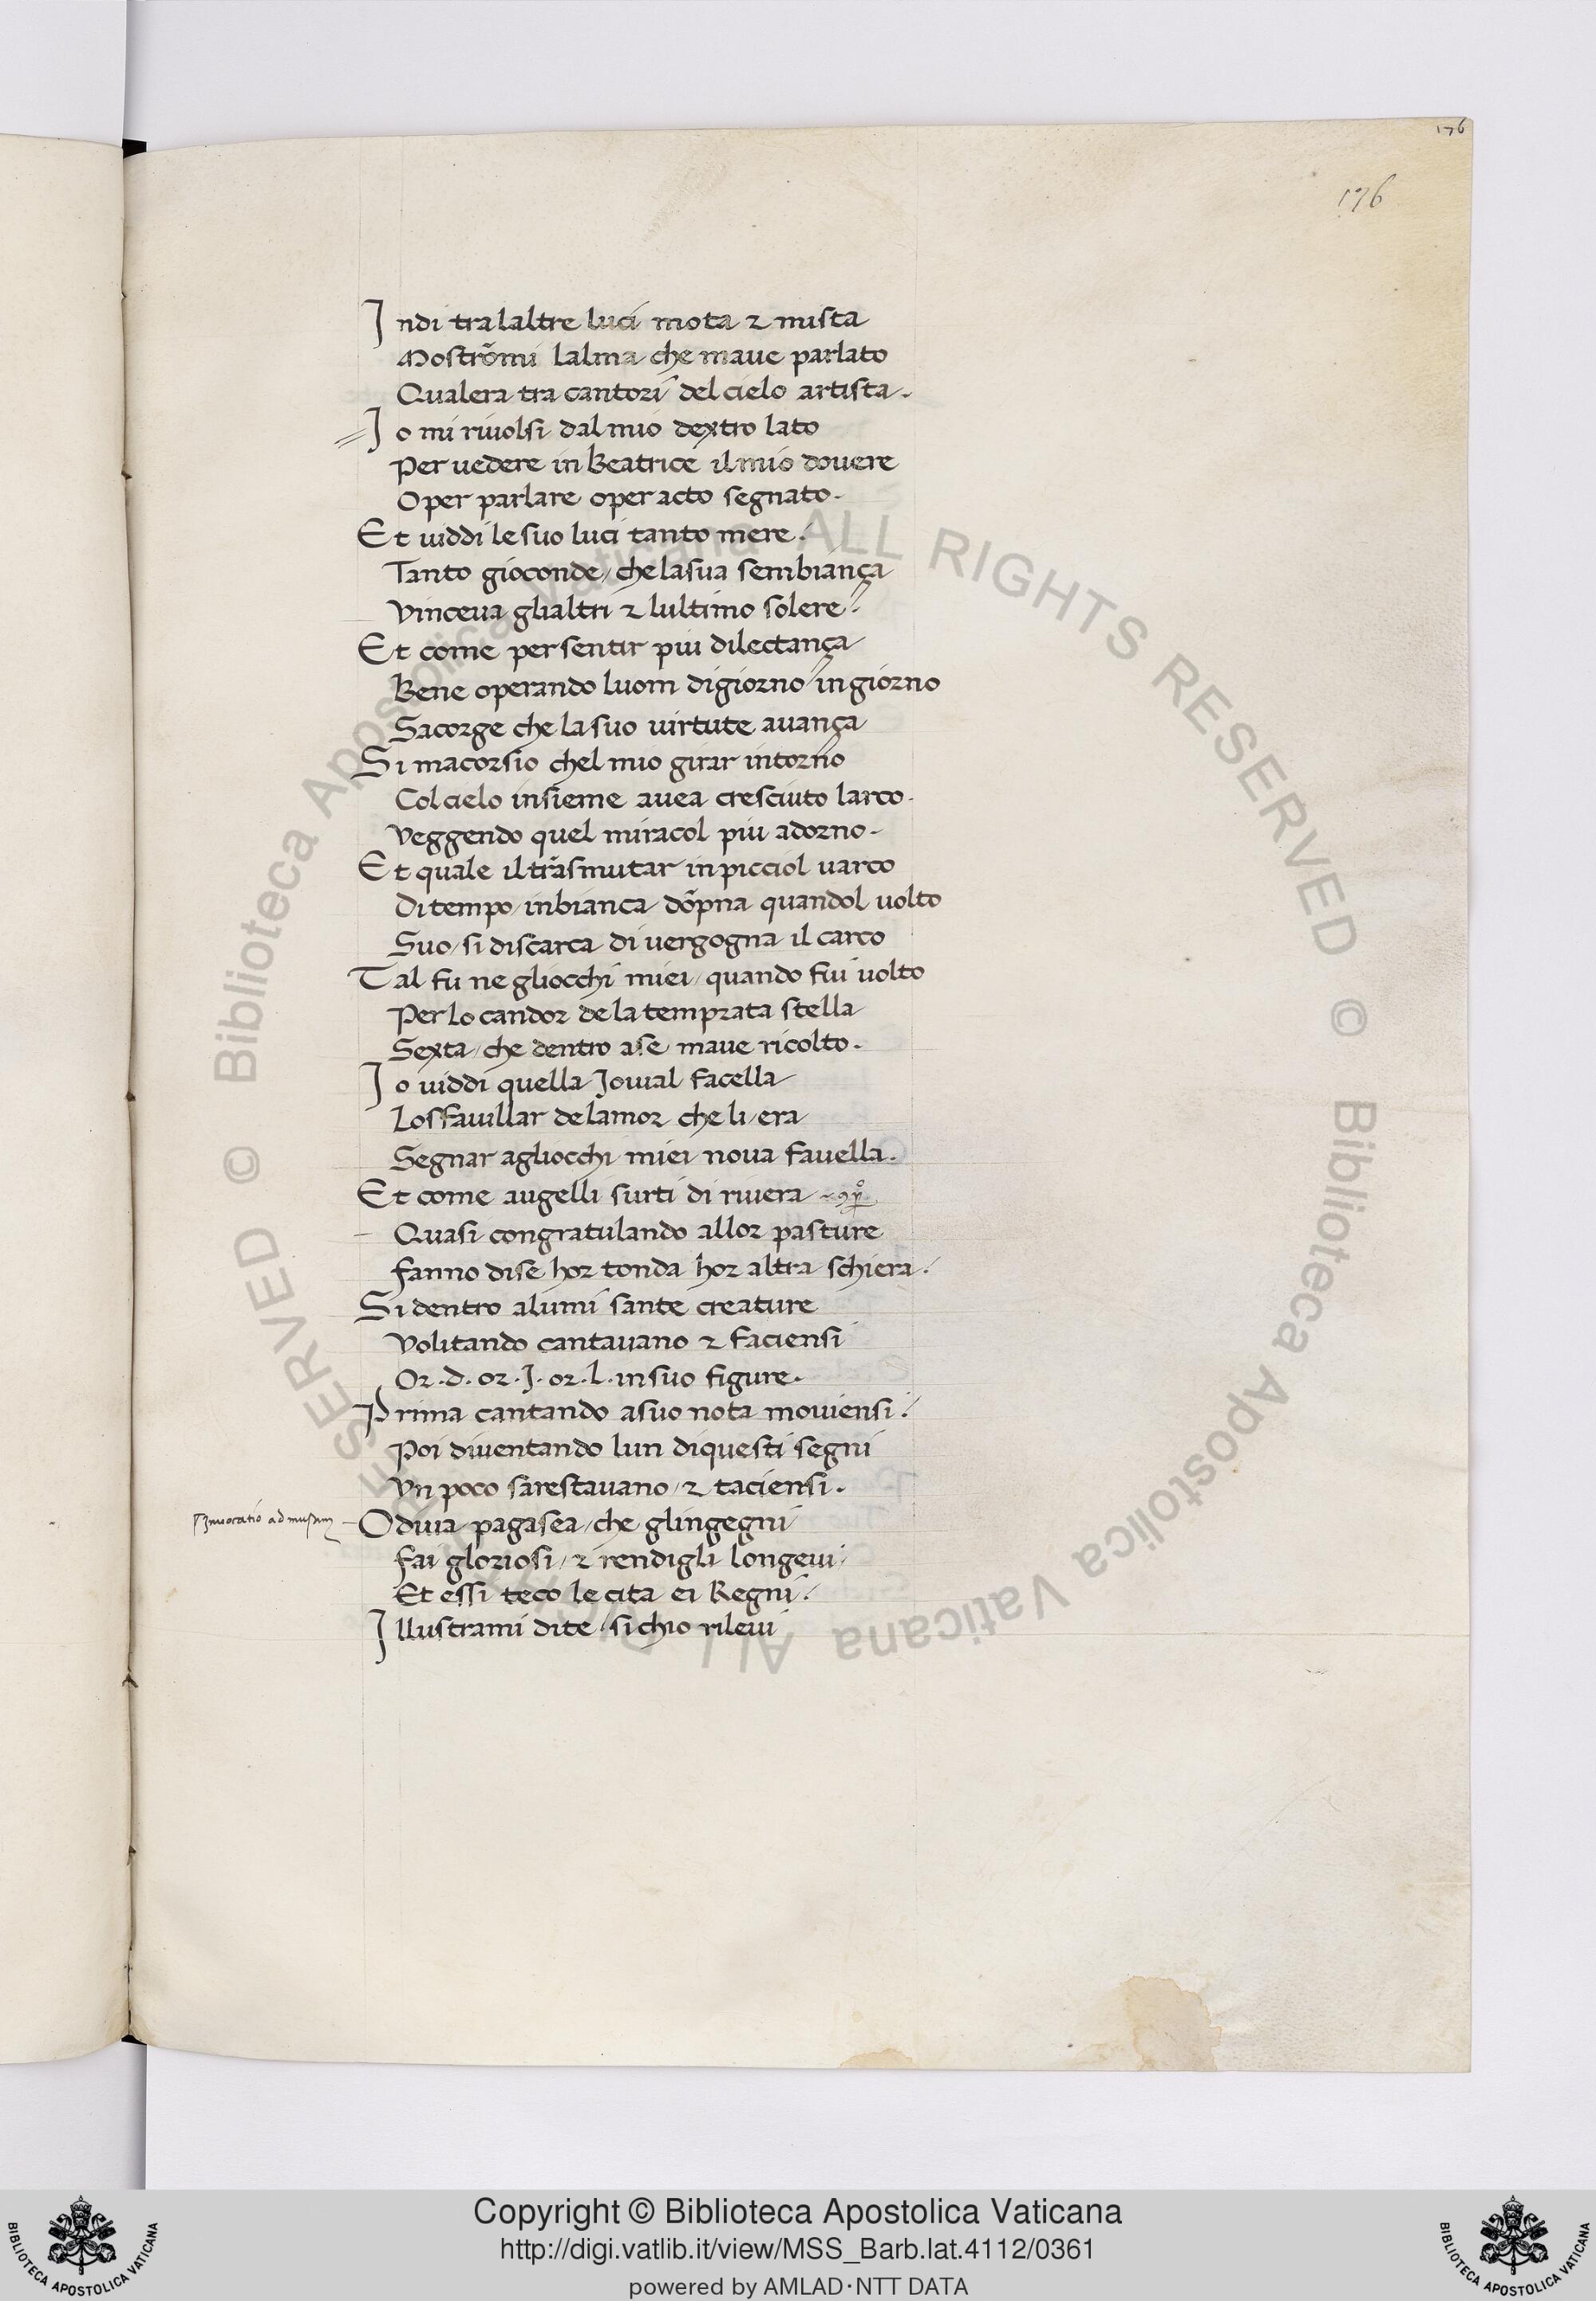 176
176
Indi tra laltre luci mota & mista
Mostrõmi lalma che maue parlato
Qualera tra cantori del cielo artista.
Io mi riuolsi dal mio dextro lato
Per uedere in Beatrice il mio douere
O per parlare o per acto segnato.
Et uiddi le suo luci tanto mere /
Tanto gioconde / che la sua sembiança
Vinceua glialtri & lultimo solere /
Et come per sentir piu dilectança
Bene operando luom di giorno in giorno
Sacorge che la suo uirtute auança
Si macorsio chel mio girar intorno
Col cielo insieme auea cresciuto larco.
Veggendo quel miracol piu adorno.
Et quale il trãsmutar in picciol uarco
Di tempo / in bianca dõpna quandol uolto
Suo / si discarca di uergogna il carco
Tal fu ne gliocchi miei / quando fui uolto
Per lo candor de la temprata stella
Sexta / che dentro a se maue ricolto.
Io uiddi quella Iouial facella
Lo sfauillar de lamor che li / era
Segnar agliocchi miei noua fauella.
Et come augelli surti di riuera
Quasi congratulando a llor pasture
fanno di se hor tonda hor altra schiera /
Si dentro a lumi sante creature
Volitando cantauano & faciensi
Or .d. or .I. or .L. in suo figure.
Prima cantando a suo nota mouiensi /
Poi diuentando lun di questi segni
Vn poco sarestauano / & taciensi.
Inuocatio ad musam
O diua pagasea / che glingegni
fai gloriosi / & rendigli longeui /
Et essi teco le cita ei Regni /
Illustrami di te / si chio rileui
© Biblioteca Apostolica Vaticana ALL RIGHTS RESERVED © Biblioteca Apostolica Vaticana ALL RIGHTS RESERVED
Copyright © Biblioteca Apostolica Vaticana
http://digi.vatlib.it/view/MSS_Barb.lat.4112/0361
powered by AMLAD·NTT DATA
BIBLIOTECA APOSTOLICA VATICANA
BIBLIOTECA APOSTOLICA VATICANA